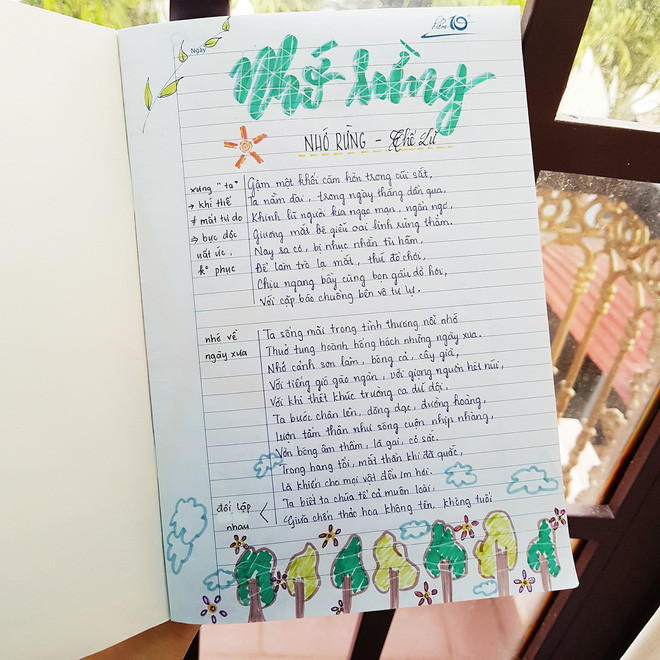 Ngày
điểm 10
Nhớ rừng
NHỚ RỪNG - Thế Lữ
xưng "ta"
→ khí thế
≠ mất tự do
⇒ bực dọc
uất ức,
kº phục
Gậm một khối căm hờn trong cũi sắt,
Ta nằm dài, trong ngày tháng dần qua.
Khinh lũ người kia ngạo mạn, ngẩn ngơ,
Giương mắt bé giễu oai linh rừng thẳm.
Nay sa cơ, bị nhục nhằn tù hãm,
Để làm trò lạ mắt, thứ đồ chơi,
Chịu ngang bầy cùng bọn gấu dở hơi,
Với cặp báo chuồng bên vô tư lự.
nhớ về
ngày xưa
Ta sống mãi trong tình thương nỗi nhớ
Thuở tung hoành hống hách những ngày xưa.
Nhớ cảnh sơn lâm, bóng cả, cây già,
Với tiếng gió gào ngàn, với giọng nguồn hét núi,
Với khi thét khúc trường ca dữ dội,
Ta bước chân lên, dõng dạc, đường hoàng,
Lượn tấm thân như sóng cuộn nhịp nhàng,
Vờn bóng âm thầm, lá gai, cỏ sắc.
Trong hang tối, mắt thần khi đã quắc,
Là khiến cho mọi vật đều im hơi.
đối lập
nhau
Ta biết ta chúa tể cả muôn loài,
Giữa chốn thảo hoa không tên, không tuổi